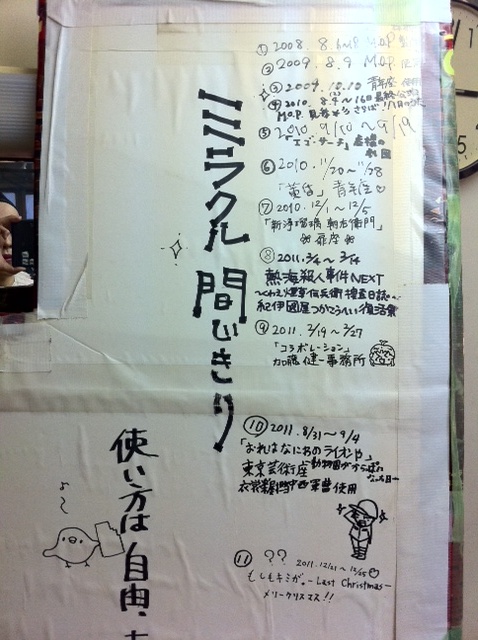 ミラクル間じきり
使い方は自由、
よ〜
① 2008. 8.
② 2009. 8. 9 M.O.P.
③ 2009. 10.10 青年座
④ 2010. 8.4〜16
M.O.P.
⑤ 2010 9/10 〜 9/19
「エゴ・サーチ」虚構の劇団
⑥ 2010. 11/20〜11/28
青年座
⑦ 2010. 12/1〜12/5
「新浄瑠璃 朝右衛門」
扉座
⑧ 2011. 3/4〜3/14
熱海殺人事件NEXT
〜くわえ煙草伝兵衛捜査日誌〜
紀伊國屋つかこうへい復活祭
⑨ 2011. 2/19〜2/27
「コラボレーション」
加藤健一事務所
⑩ 2011. 8/31〜9/4
「おれはなにわのライオンや」
動物園がからっぽに
なった日ー
東京芸術座
衣裳 軍曹使用
⑪ ?? 2011. 12/21〜12/25
もしもキミが。-Last Christmas-
メリークリスマス!!